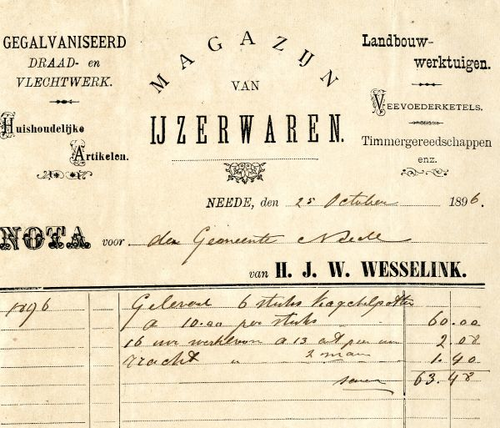 GEGALVANISEERD
DRAAD- en
VLECHTWERK.
Huishoudelijke
Artikelen.
MAGAZIJN
VAN
IJZERWAREN.
Landbouw-
werktuigen.
VEEVOEDERKETELS.
Timmergereedschappen
enz.
NEEDE, den 25 October 1896.
NOTA voor den Gemeente Neede
van H. J. W. WESSELINK.
1896 Geleverd 6 stuks kagchelpotten
a 10.00 per stuks 60.00
16 uur werkloon a 13 per uur 2.08
vracht " 2 man 1.40
samen 63.48